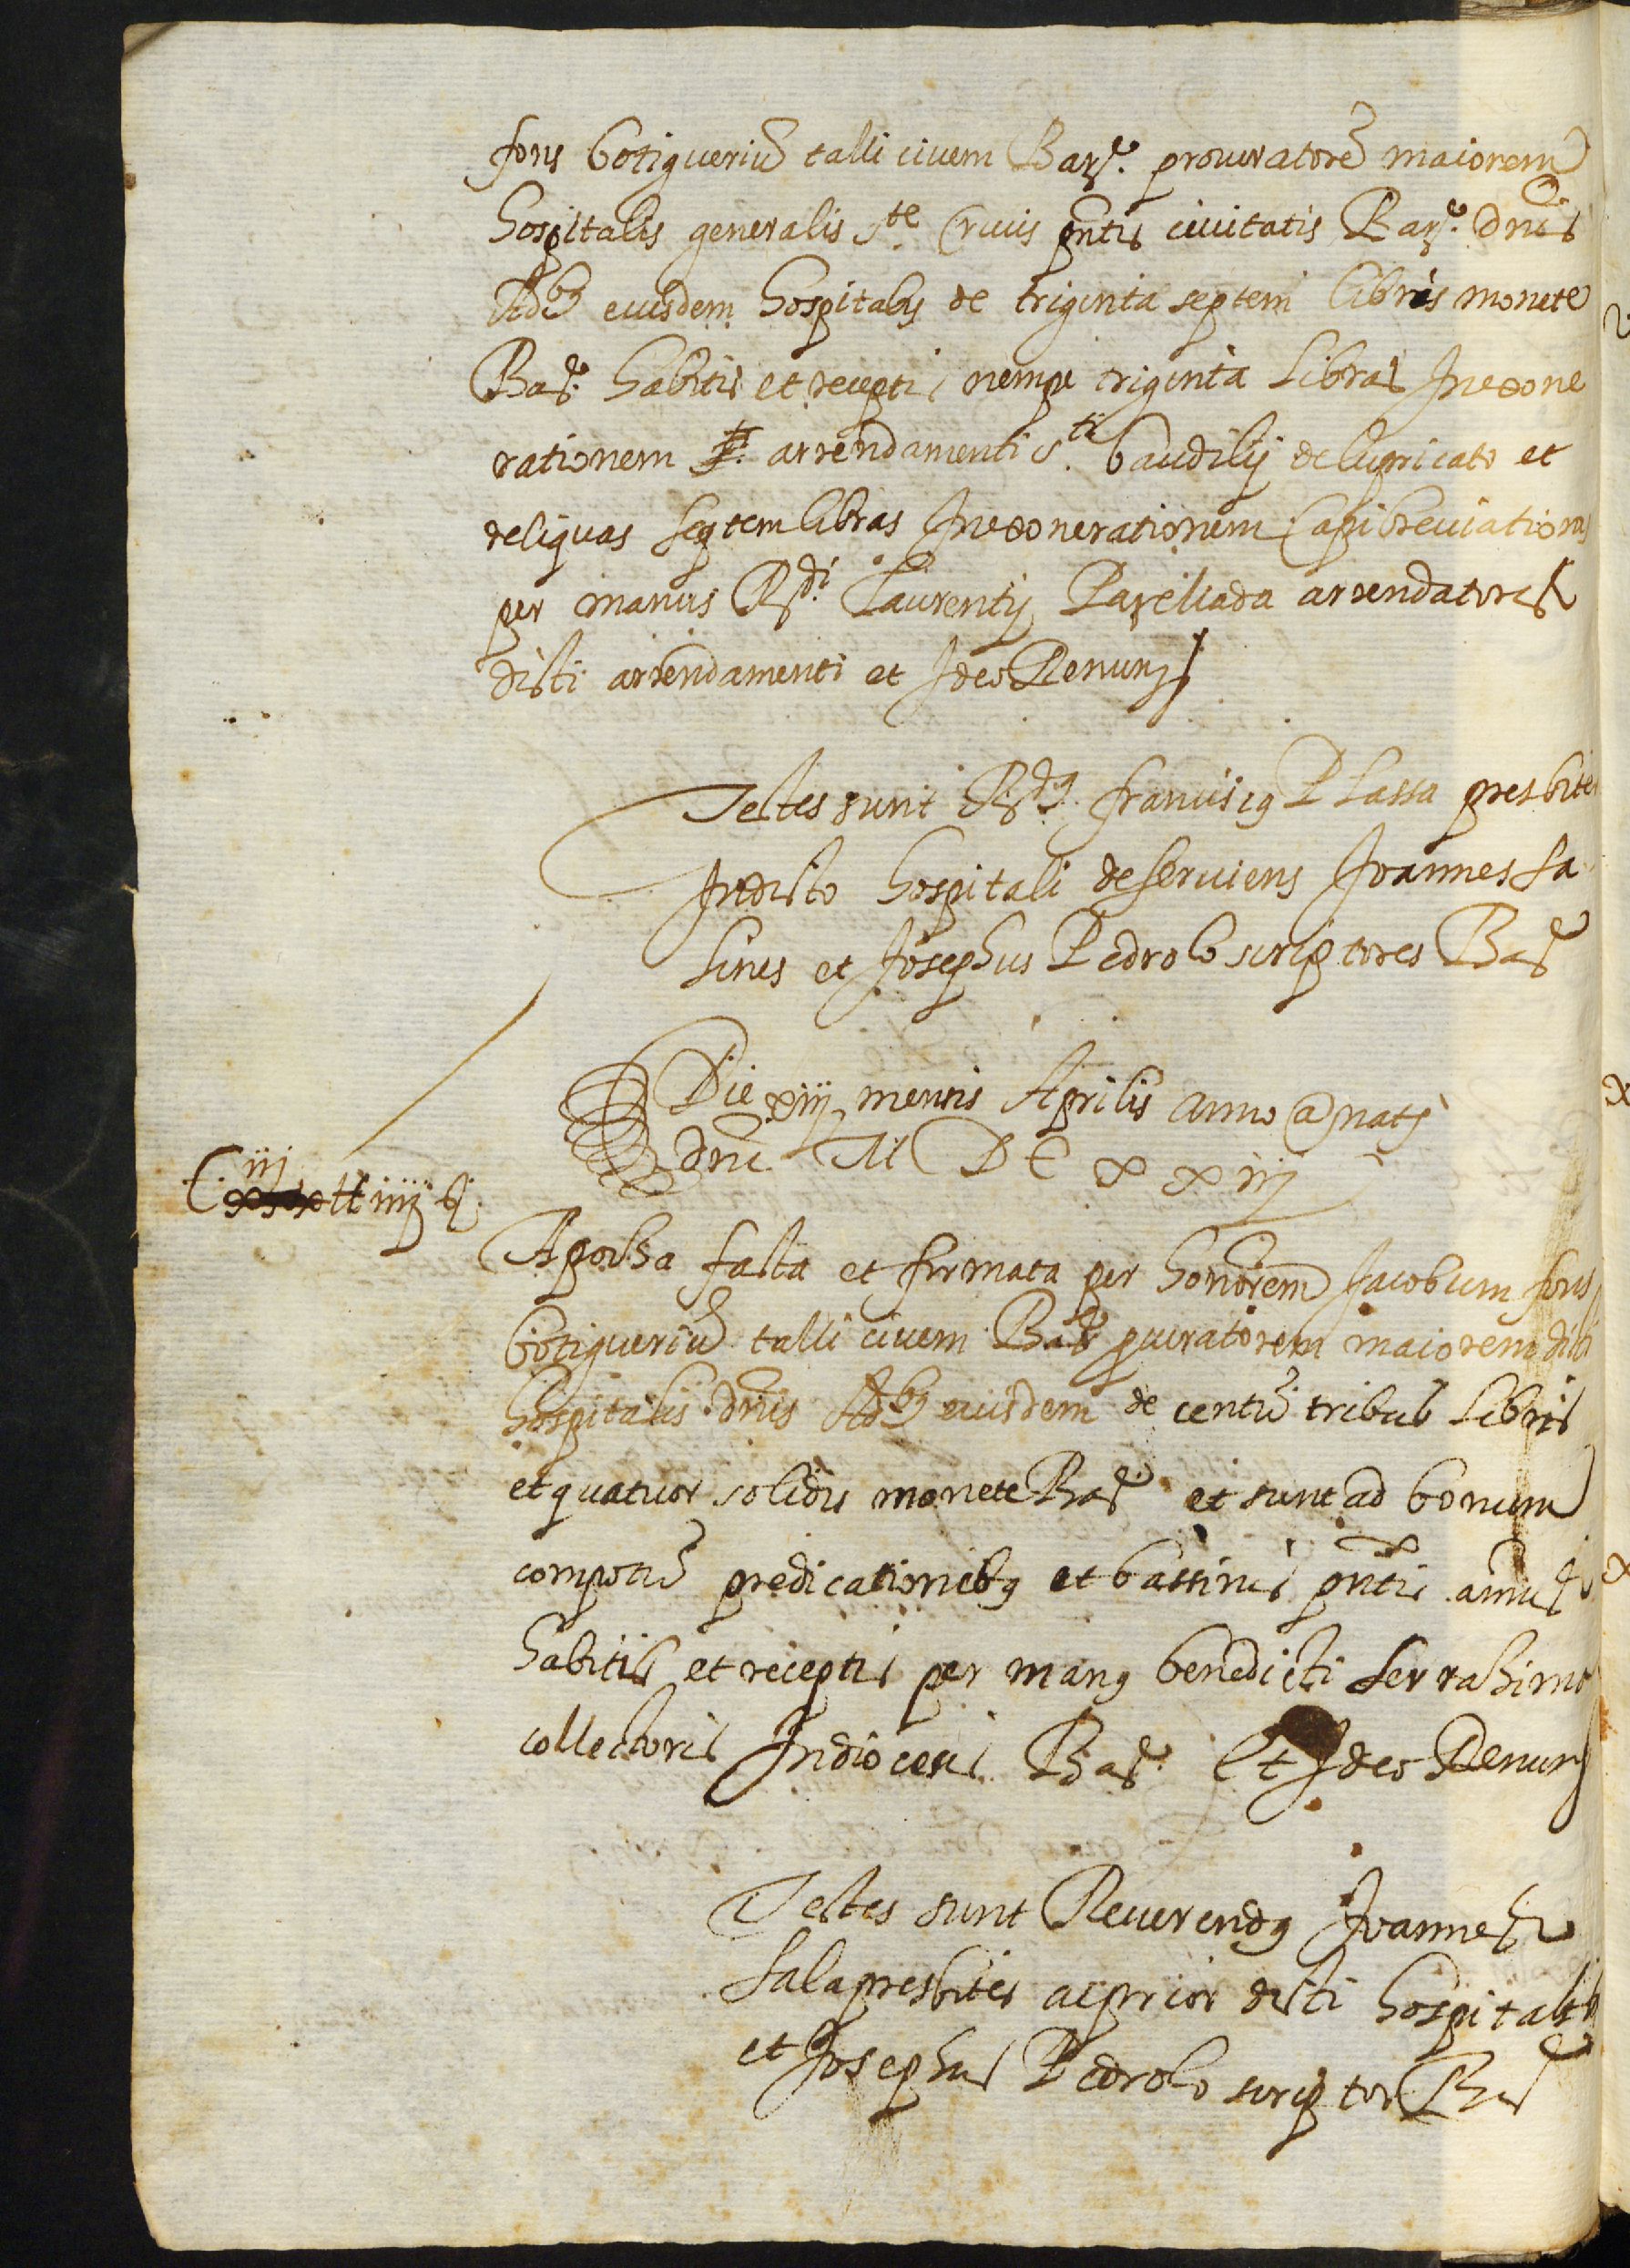 fons botigueriũ talli ciuem Barᵉ. procuratorẽ maiorem
hospitalis generalis Sᵗᵉ Crucis pñtis ciuitatis Barᵉ. dñis
Adᵇ⁹ eiusdem hospitalis de triginta septem libris monete
Barᵉ. habitis et receptis nempe triginta libras Inexone
rationem arrendamenti Sᵗⁱ baudilij delupricato et
reliquas septem libras Inexonerationem Capibreuiationis
per manus Rᵈⁱ. Laurentij Parellada arrendatoris
dicti arrendamenti et Ideo Renunꝫ
Testes sunt Rᵈ⁹ franciscꝯ Plassa presbiter
Indicto hospitali deseruiens Joannes Sa
lines et Josephus Pedrolo scriptores Barᵉ
Die xiij mensis Aprilis anno a natᵉ
dñi M D C x x iij
C iij ll iiij s.
Apocha facta et firmata per honorem Jacobum fons
botigueriũ talli ciuem Barᵉ pcuratorem maiorem dicti
hospitalis dñis Adᵇ⁹ eiusdem de centũ tribus libris
et quatuor solidis monete Barᵉ et sunt ad bonum
compotũ predicationibꝯ et bassinis pñtis anni
habitis et receptis per manꝯ benedicti Serrahima
collectoris Indiocesi Barᵉ. Et Ideo Renunꝫ
Testes sunt Reuerendꝯ Joannes
Sala presbiter ac prior dicti hospitalis
et Josephus Pedrolo scriptor Barᵉ